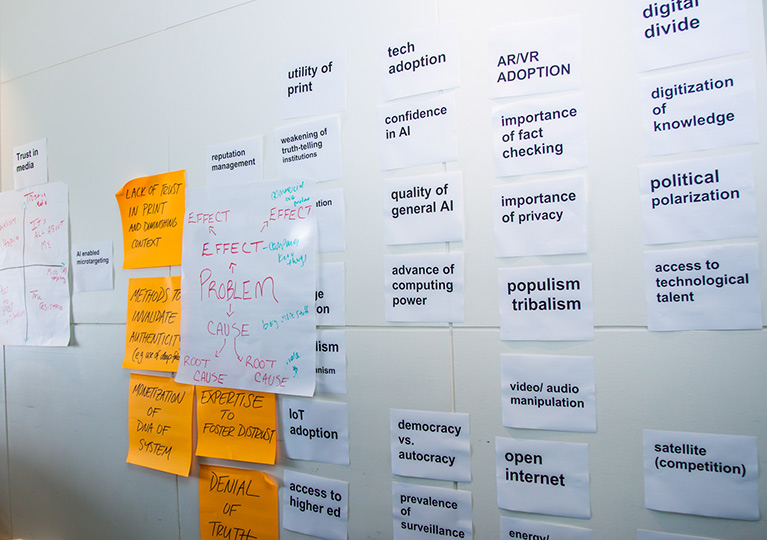 Trust in
media
AI enabled
microtargeting
LACK OF TRUST
IN PRINT
AND DIMINISHING
CONTEXT
METHODS TO
INVALIDATE
AUTHENTICITY
MONETIZATION
OF
DNA OF
SYSTEM
EXPERTISE
TO
FOSTER DISTRUST
DENIAL
OF
TRUTH
reputation
management
EFFECT
EFFECT
EFFECT
PROBLEM
CAUSE
ROOT
CAUSE
ROOT
CAUSE
utility of
print
weakening of
truth-telling
institutions
IoT
adoption
access to
higher ed
tech
adoption
confidence
in AI
quality of
general AI
advance of
computing
power
democracy
vs.
autocracy
prevalence
of
surveillance
AR/VR
ADOPTION
importance
of fact
checking
importance
of privacy
populism
tribalism
video/ audio
manipulation
open
internet
energy/
digital
divide
digitization
of
knowledge
political
polarization
access to
technological
talent
satellite
(competition)